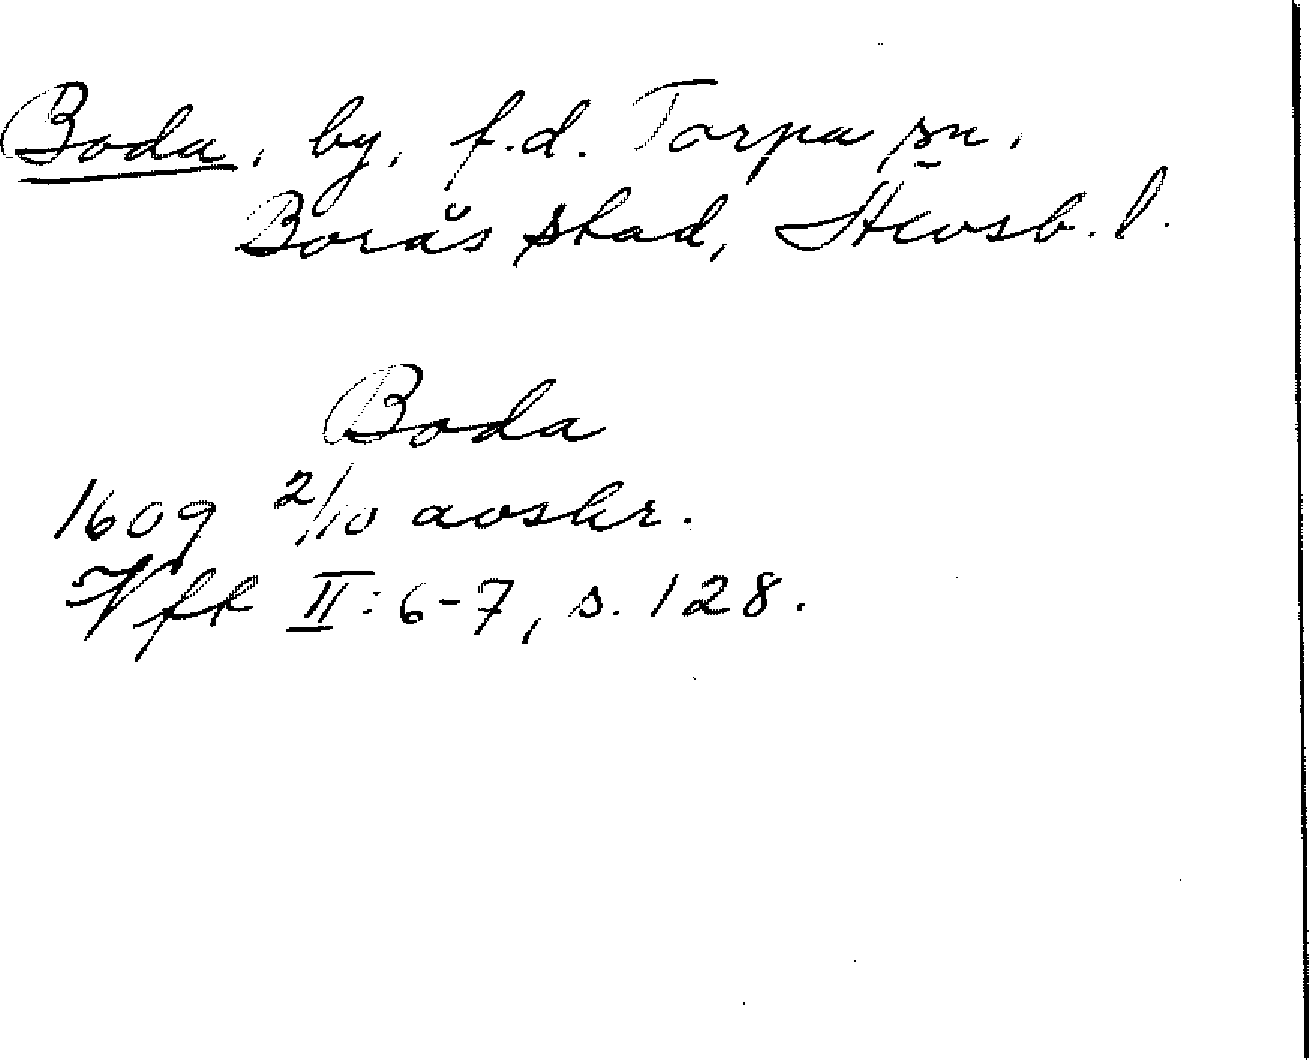 Boda, by, f.d. Torpa sn,
Borås stad, Älvsb. l.
Boda
1609 2/10 avskr.
Vfk II: 6-7, s. 128.